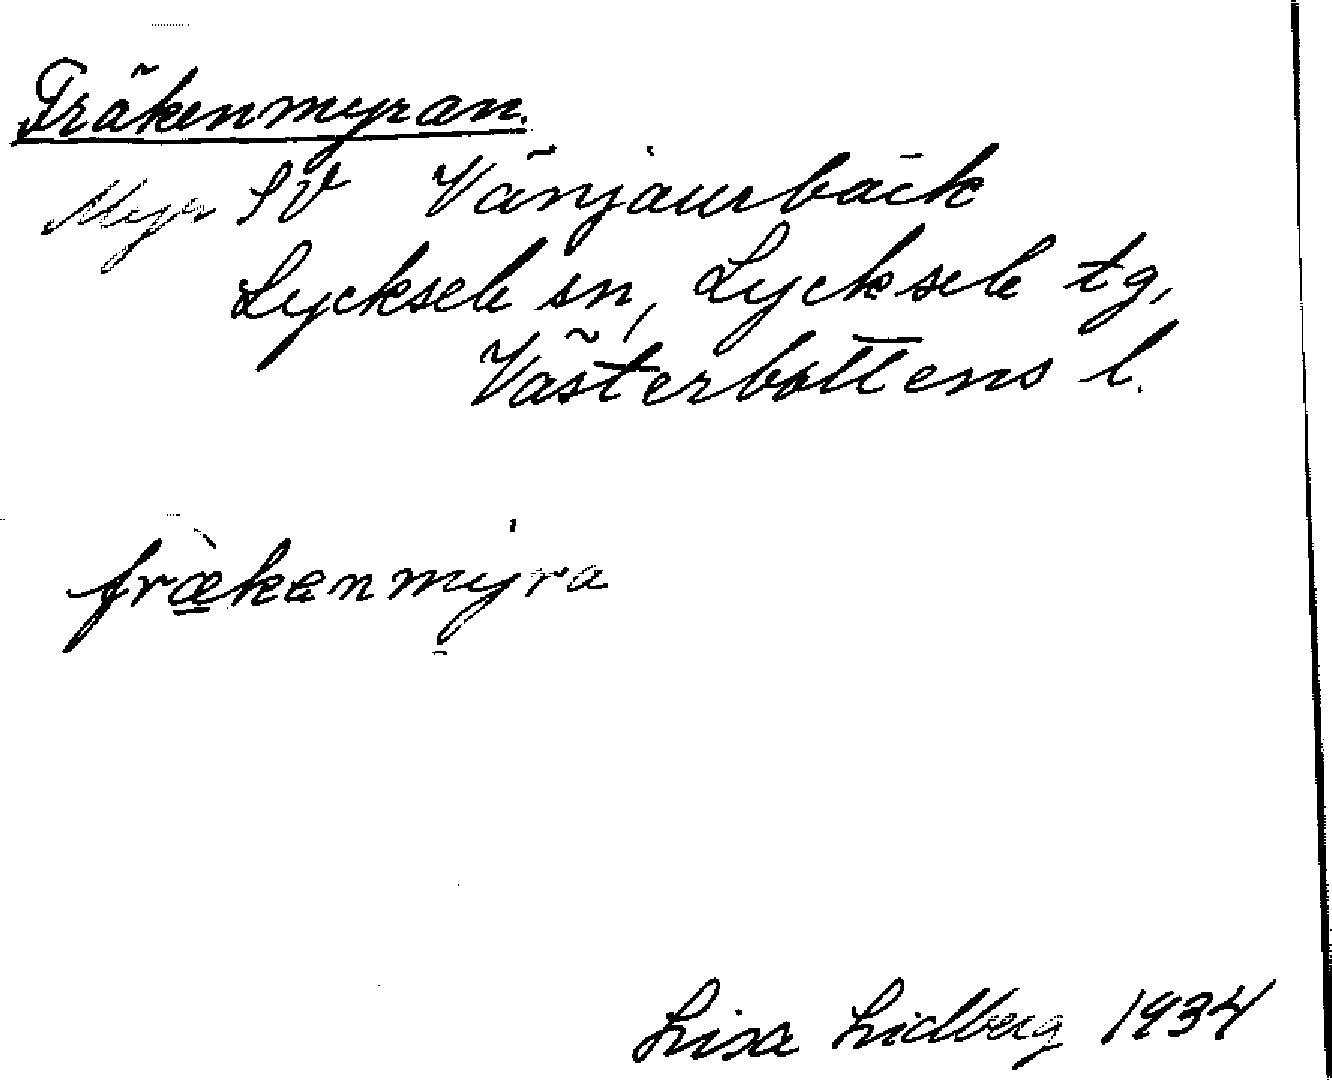 Fräkenmyran.
Myr SV Vänjaurbäck
Lycksele sn, Lycksele tg,
Västerbottens l.
fræ̀kenmyra
Lisa Lidberg 1934